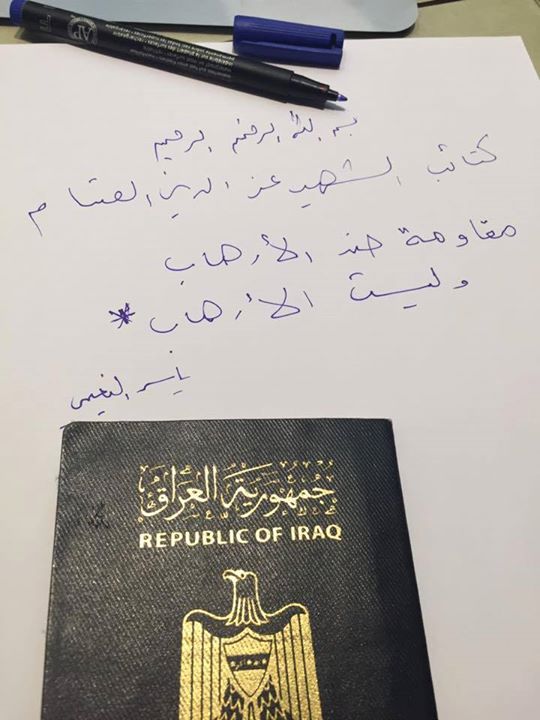 بسم الله الرحمن الرحيم
كتائب الشهيد عز الدين القسام
مقاومة ضد الأرهاب
وليست الأرهاب *
ياسر النعيمي
جمهورية العراق
REPUBLIC OF IRAQ